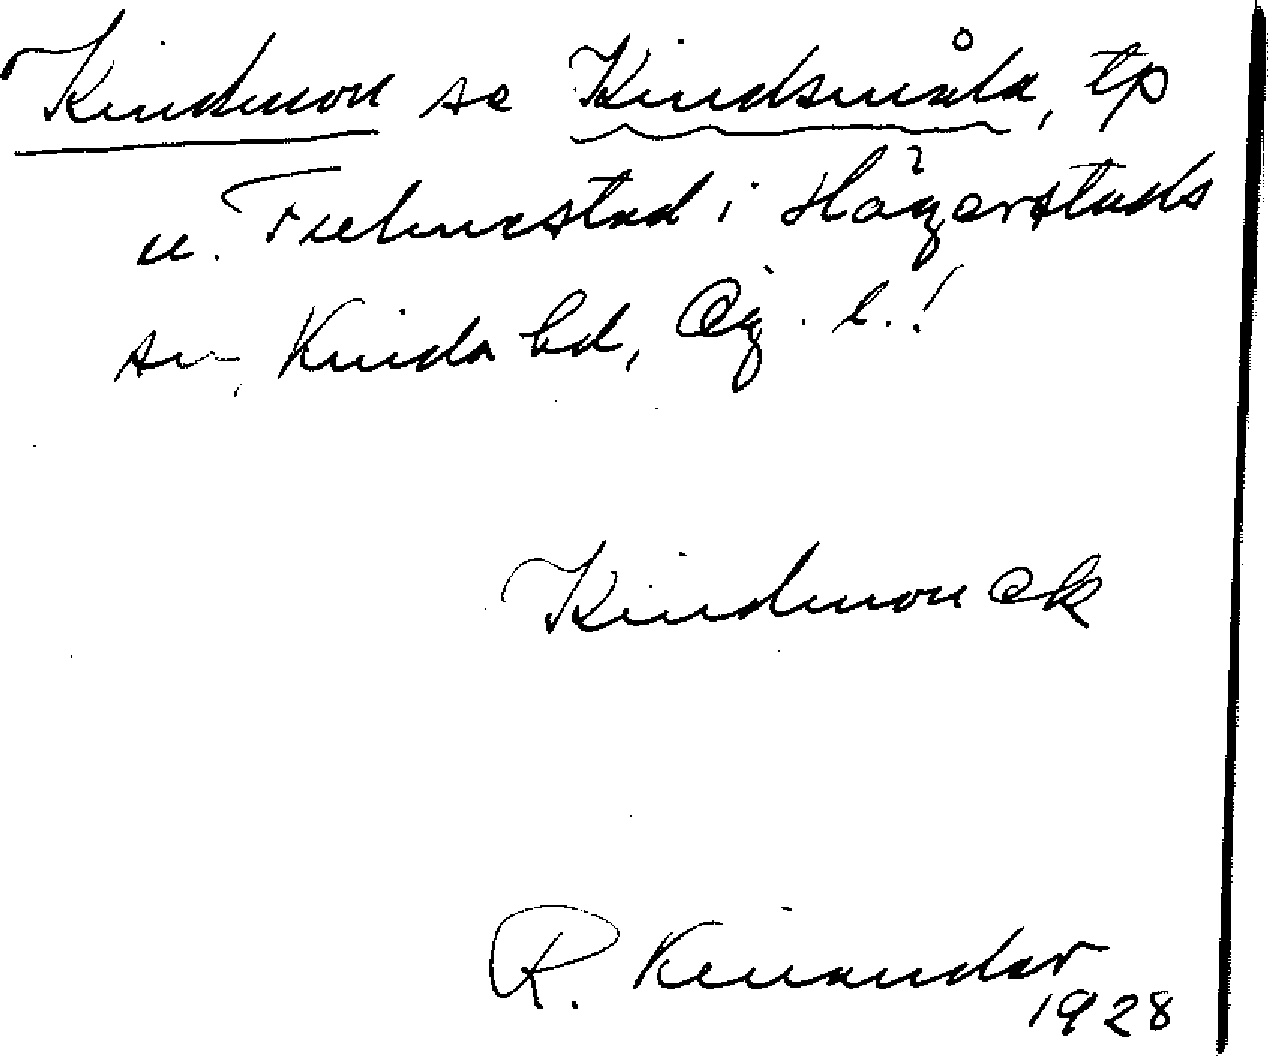 Kindmon se Kindsmåla, tp
u. Fillinestad i Hägerstads
sn, Kinda hd, Ög. l.!
Kindmon ek
R. Kinander
1928